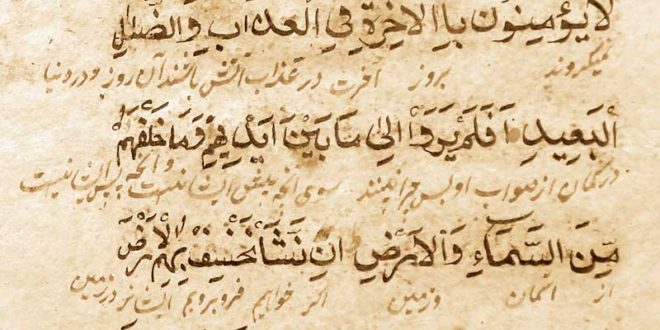 لَا يُؤْمِنُونَ بِالْاٰخِرَةِ فِي الْعَذَابِ وَالضَّلٰلِ
نمیگروند بروز آخرت در عذاب آتش باشند آن روز و در دنیا
الْبَعِيدِ اَفَلَمْ يَرَوْا اِلٰى مَا بَيْنَ اَيْدِيهِمْ وَمَا خَلْفَهُمْ
از صواب سوی آنچه پیش ایشانست و آنچه پس ایشانست
مِنَ السَّمَاءِ وَالْاَرْضِ اِنْ نَشَأْ نَخْسِفْ بِهِمُ الْاَرْضَ
از آسمان و زمین اگر خواهیم فرو بریم ایشانرا در زمین